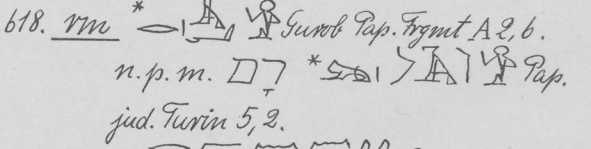 618. rm * Gurob Pap. Frgmt A 2, 6.
n. p. m. רָם * Pap.
jud. Turin 5, 2.